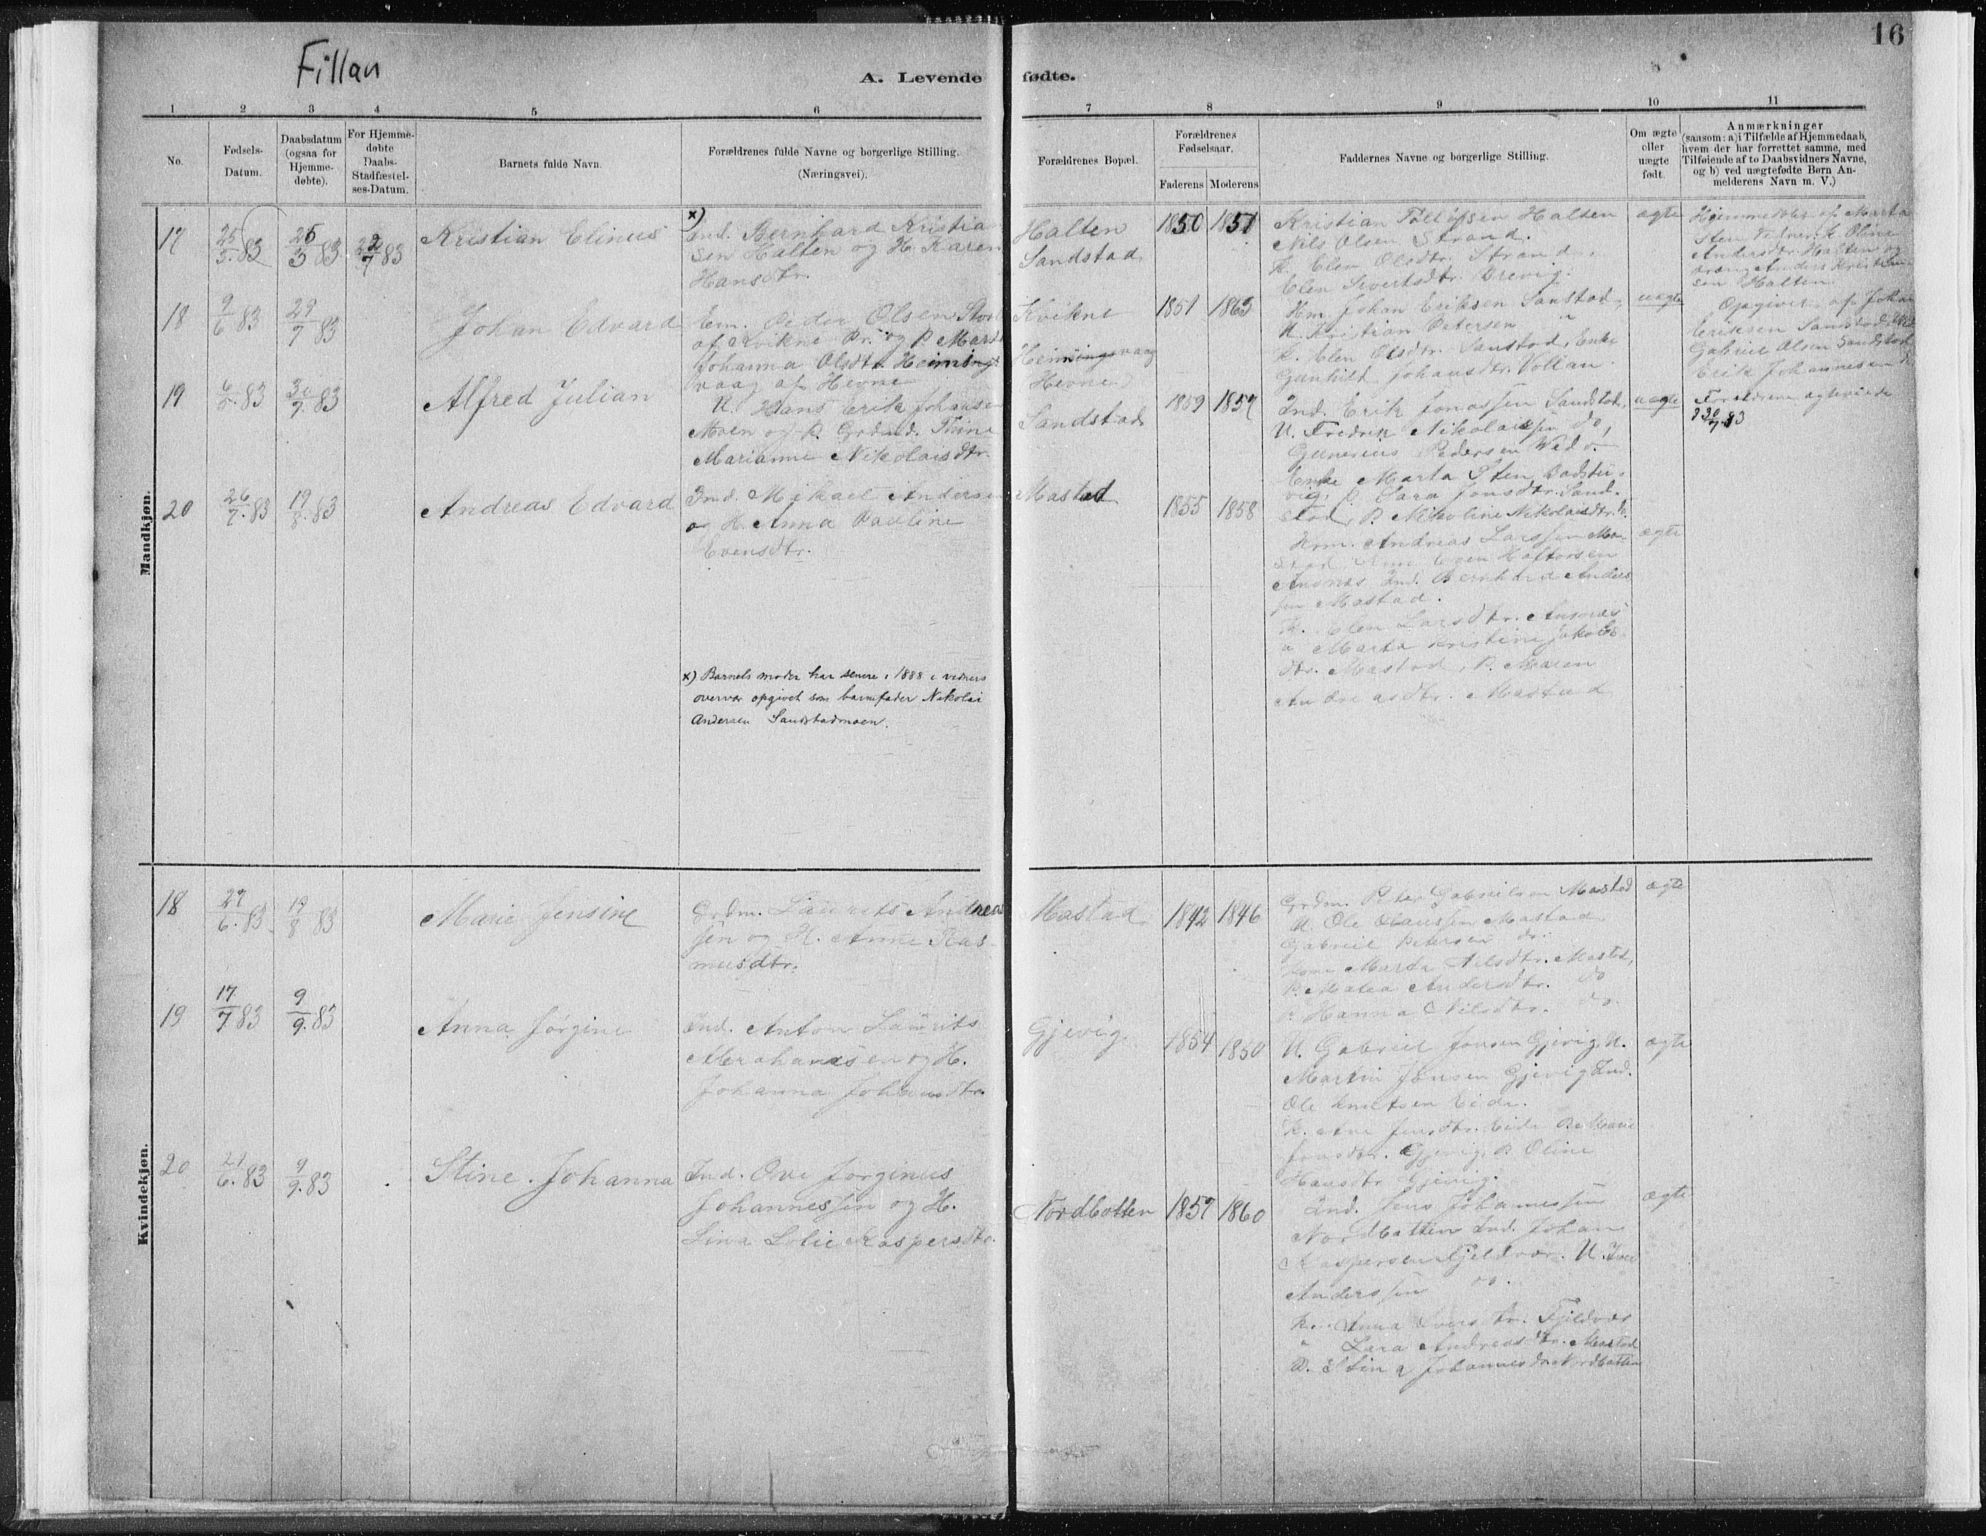 Fillan
16
A. Levende fødte.
1 2 3 4 5 6 7 8 9 10 11
No.
Fødsels-
Datum.
Daabsdatum
(ogsaa for
Hjemme-
døbte).
For Hjemme-
døbte
Daabs-
Stadfæstel-
ses-Datum.
Barnets fulde Navn.
Forældrenes fulde Navne og borgerlige Stilling.
(Næringsvei).
Forældrenes Bopæl.
Forældrenes
Fødselsaar.
Faderens Moderens
Faddernes Navne og borgerlige Stilling.
Om ægte
eller
uægte
født.
Anmærkninger
(saasom: a) i Tilfælde af Hjemmedaab,
hvem der har forrettet samme, med
Tilføiende af to Daabsvidners Navne,
og b) ved uægtefødte Børn An-
melderens Navn m. V.)
Mandkjøn.
17
25/3.83
26/3 83
22/7 83
Kristian Elinus
x)
Ind. Bernhard Kristian
sen Halten og H. Karen
Hansdtr.
Halten
Sandstad
1850 1851
Kristian Halten
Nils Olsen Strand.
K. Elen Olsdtr. Strand
Elen Sivertsdtr. Brevig.
ægte
Hjemmedøbt af Marta
Sten
Andersdtr. Halten og
Anders Kristian
sen Halten
18
9/6.83
29/7 83
Johan Edvard
Em. Peder Olsen
af Kvikne Pr. og P. Marta
Johanna Olsdtr. Heimings
vaag af Hevne
Kvikne
Heimingsvaag
Hevne)
1851 1863
Hm. Johan Eriksen Sanstad,
U. Kristian Petersen "
K. Elen Olsdtr. Sanstad, Enke
Gunhild Johansdtr. Vollan.
uægte
Opgivet af Johan
Eriksen Sandstad
Gabriel Olsen Sandstad
Erik Johannesen
19
83
30/7.83
Alfred Julian
U. Hans Erik Johansen
Moen og P.
Marianne Nikolaisdtr.
Sandstad
1859 1857
Ind. Erik Jonassen Sandstad,
U. Fredrik Nikolaisen do,
Gunerius Pedersen
Enke Marta Sten
vig, P. Sara Jonsdtr. Sand-
stad, P. Nikoline Nikolaisdtr.
uægte
Forældrene ægteviede
30/7.83
20
26/7.83
19/8.83
Andreas Edvard
Ind. Mikael Andersen
og H. Anna Pauline
Evensdtr.
Mastad
1855 1858
Hm. Andreas Larssen Ma-
stad,
Ansnes Ind. Bernhard Anders
sen Mastad.
K. Elen Larsdtr. Ansnes
" Marta Kristine Jakobs-
dtr. Mastad, P. Maren
Andreasdtr. Mastad
ægte
x) Barnets moder har senere i 1888 i vidners
overvær opgivet som barnefader Nikolai
Andersen Sandstadmoen.
Kvindekjøn.
18
27/6.83
19/8 83
Marie Jensine
Grdm. Laurits Andreas
sen og H. Anne Ras-
musdtr.
Mastad
1842 1846
Grdm. Peter Gabrielsen Mastad
U. Ole Olaussen Mastad
Gabriel Petersen do.
Kone Marta Nilsdtr. Mastad,
P. Matea Andersdtr. do
P. Hanna Nilsdtr. do.
ægte
19
17/7.83
9/9.83
Anna Jørgine
Ind. Anton Laurits
Abrahamsen og H.
Johanna Johansdtr.
Gjevig
1854 1850
U. Gabriel Jonsen Gjevig, U.
Martin Jonsen Gjevig Ind.
Ole Knutsen Eide.
K. Ane Jensdtr. Eide P. Marie
Jonsdtr. Gjevig, P. Oline
Hansdtr Gjevig.
ægte
20
21/6.83
9/9.83
Stine Johanna
Ind. Ove Jørginus
Johannessen og H.
Lina Kaspersdtr.
Nordbotten
1857 1860
Ind. Jens Johannessen
Nordbotten Ind. Johan
Kaspersen Fjeldvær. U.
Anderssen do.
K. Anna Fjeldvær
" Lara Andreasdtr. Mastad
P. Stina Johannesdtr Nordbotten
ægte